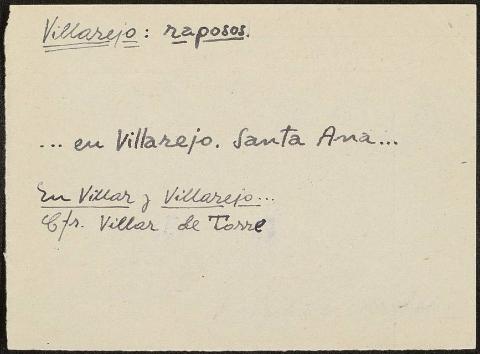 Villarejo: raposos.
... en Villarejo. Santa Ana...
En Villar y Villarejo...
Cfr. Villar de Torre